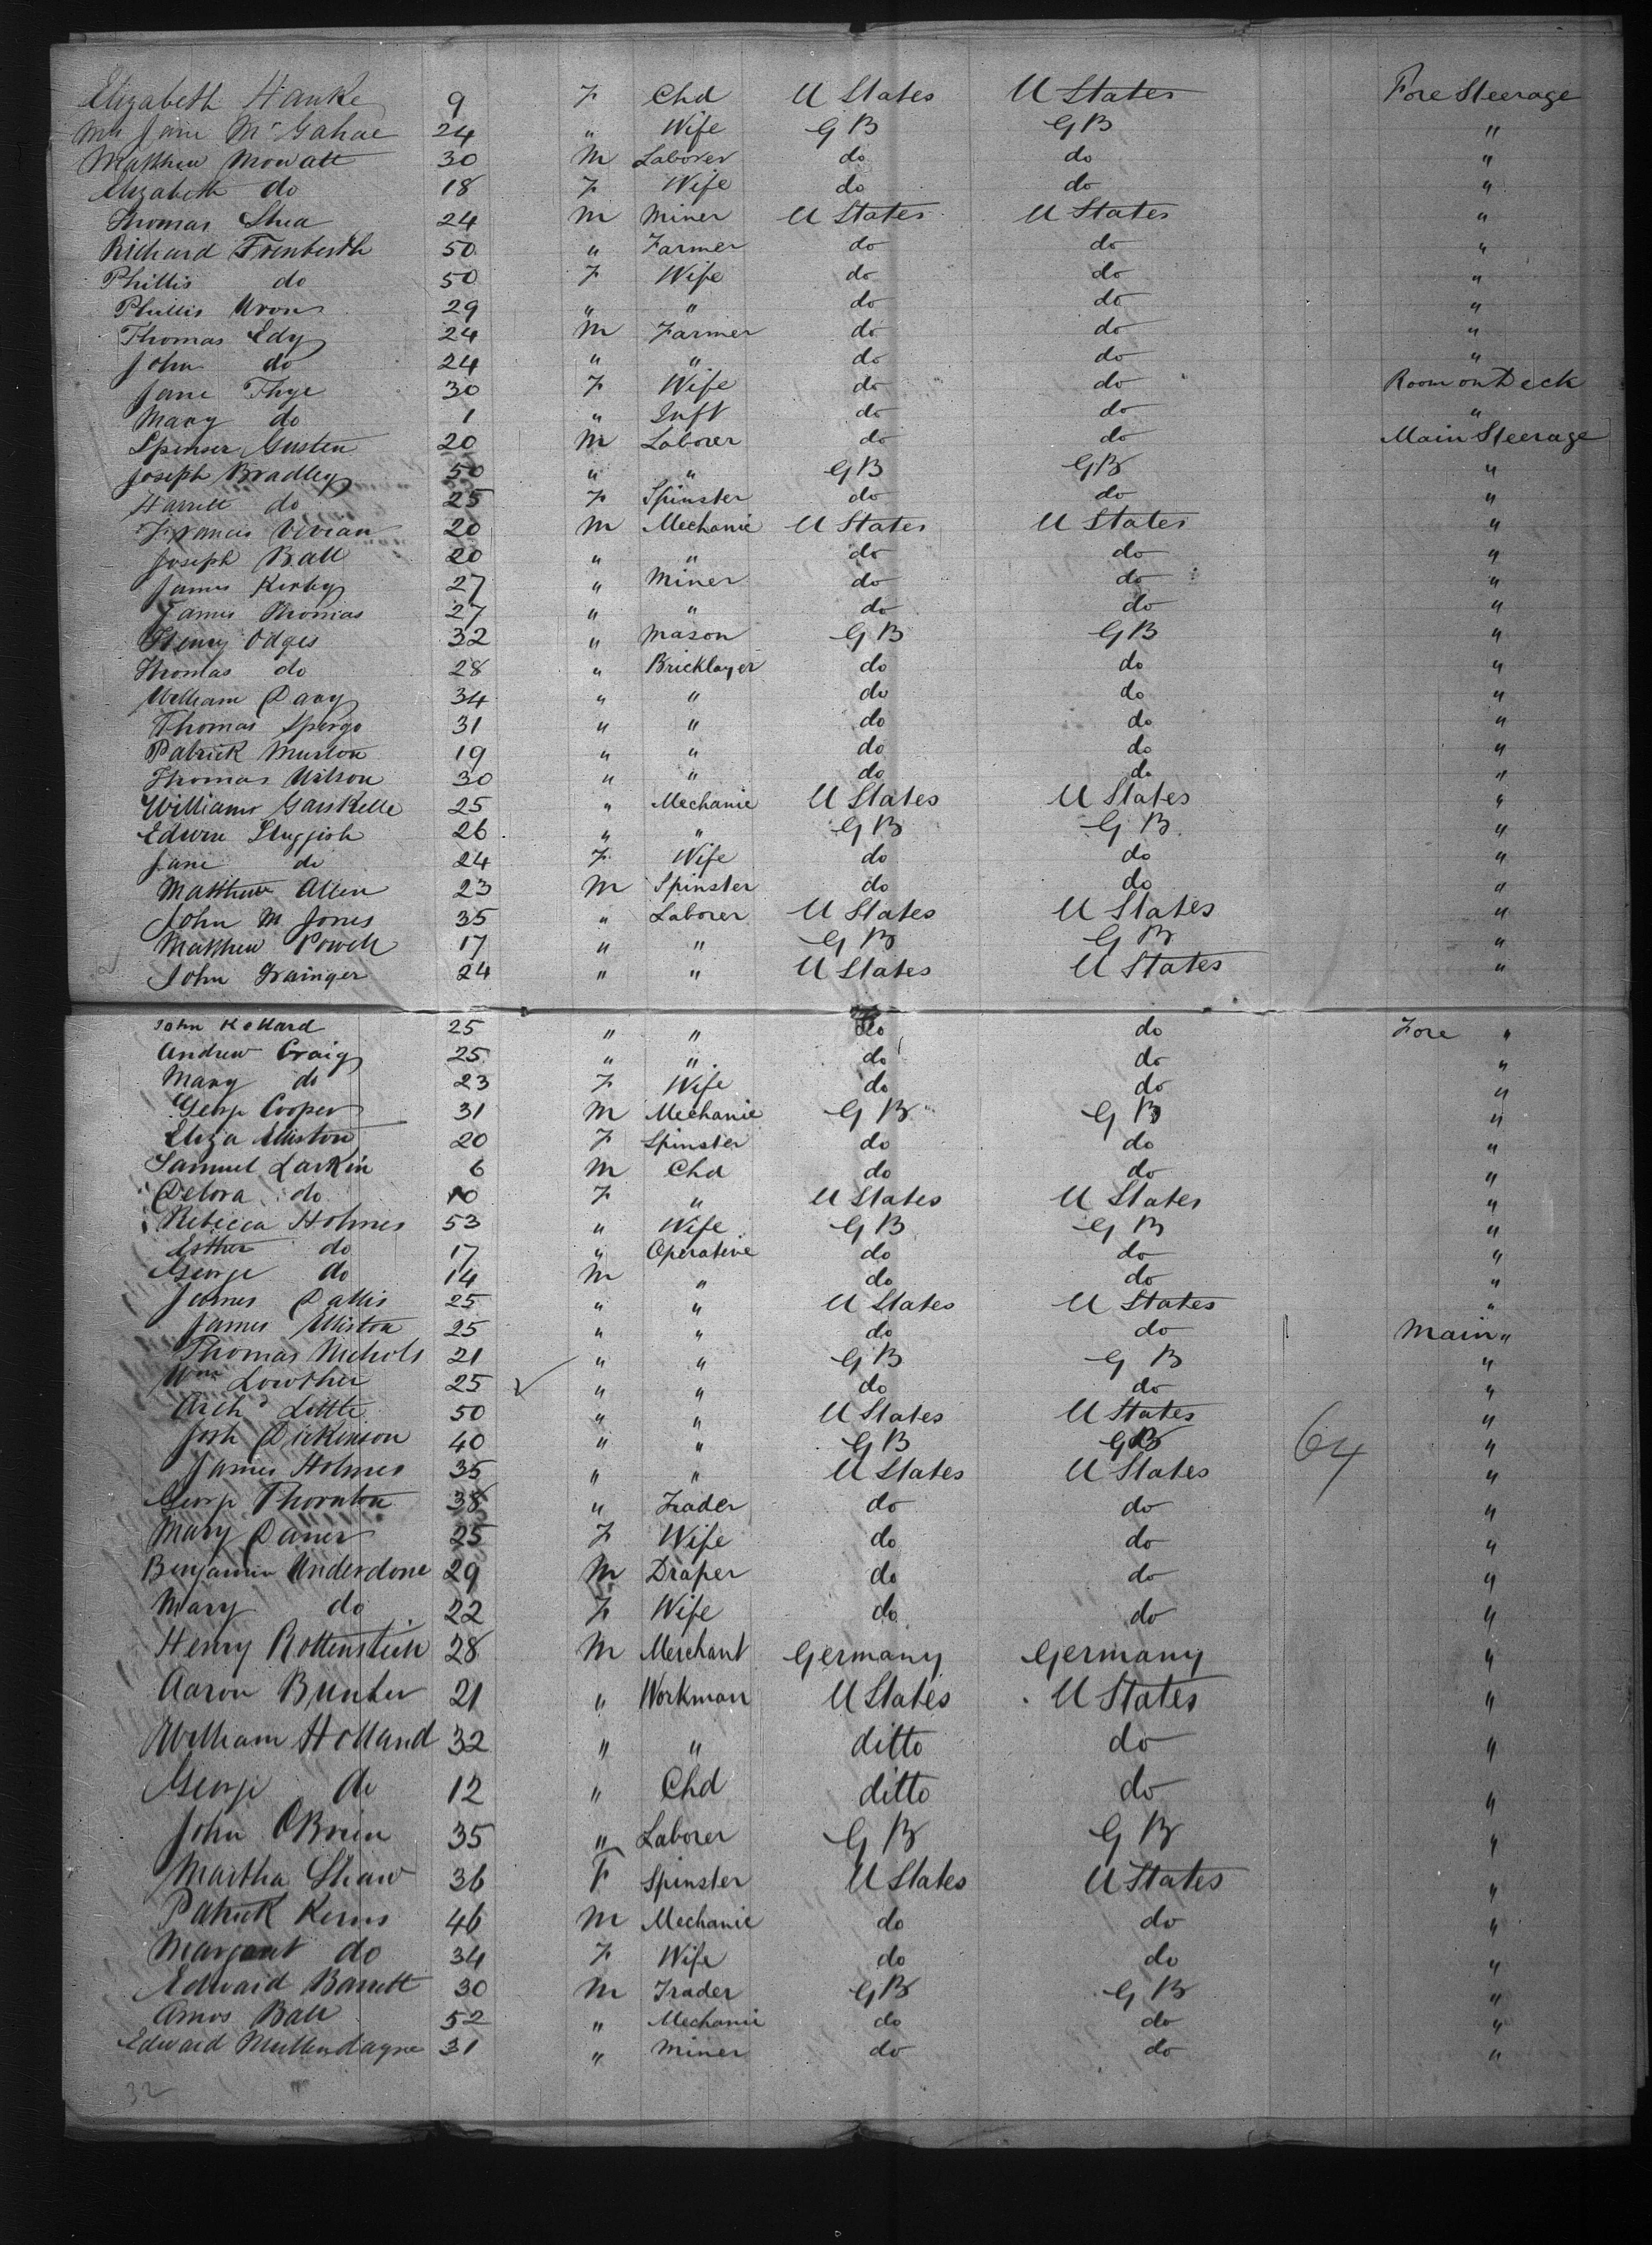 Elizabeth Hanke 9 F Chd U States U States Fore Steerage
Mrs Jane McGahae 24 " Wife G B G B "
Matthew Mowatt 30 M Laborer do do "
Elizabeth do 18 F Wife do do "
Thomas Shea 24 M Miner U States U States "
Richard Trenberth 50 " Farmer do do "
Phillis do 50 F Wife do do "
Phillis Uron 29 " " do do "
Thomas Edy 24 M Farmer do do "
John do 24 " " do do "
Jane Thye 30 F Wife do do Room on Deck
Mary do 1 " Inft do do "
Spenser Gusten 20 M Laborer do do Main Steerage
Joseph Bradley 50 " " G B G B "
Harriett do 25 F Spinster do do "
Francis Vivian 20 M Mechanic U States U States "
Joseph Ball 20 " " do do "
James Kirby 27 " Miner do do "
James Thomas 27 " " do do "
Henry Odges 32 " Mason G B G B "
Thomas do 28 " Bricklayer do do "
William Davy 34 " " do do "
Thomas Spergo 31 " " do do "
Patrick Murton 19 " " do do "
Thomas Wilson 30 " " do do "
William Garskelle 25 " Mechanic U States U States "
Edwin Sluggish 26 " " G B G B "
Jane do 24 F Wife do do "
Matthew Allen 23 M Spinster do do "
John M Jones 35 " Laborer U States U States "
Matthew Powell 17 " " G B G B "
John Grainger 24 " " U States U States "
John Kollard 25 " " do do Fore "
Andrew Craig 25 " " do do "
Mary do 23 F Wife do do "
George Cooper 31 M Mechanic G B G B "
Eliza Elliston 20 F Spinster do do "
Samuel Larkin 6 M Chd do do "
Delora do 10 F " U States U States "
Rebecca Holmes 53 " Wife G B G B "
Esther do 17 " Operative do do "
George do 14 M " do do "
James Dallis 25 " " U States U States "
James Elliston 25 " " do do Main "
Thomas Nichols 21 " " G B G B "
Wm Lowther 25 " " do do "
Archd Little 50 " " U States U States "
Josh Dickinson 40 " " G B G B 64 "
James Holmes 35 " " U States U States "
George Thornton 38 " Trader do do "
Mary Daner 25 F Wife do do "
Benjamin Underdone 29 M Draper do do "
Mary do 22 F Wife do do "
Henry Rottenstein 28 M Merchant Germany Germany "
Aaron Bunter 21 " Workman U States U States "
William Holland 32 " " ditto do "
George do 12 " Chd ditto do "
John OBrien 35 " Laborer G B G B "
Martha Shaw 36 F Spinster U States U States "
Patrick Kerns 46 M Mechanic do do "
Margaret do 34 F Wife do do "
Edward Barrett 30 M Trader G B G B "
Amos Ball 52 " Mechanic do do "
Edward Mullendagne 31 " Miner do do "
32